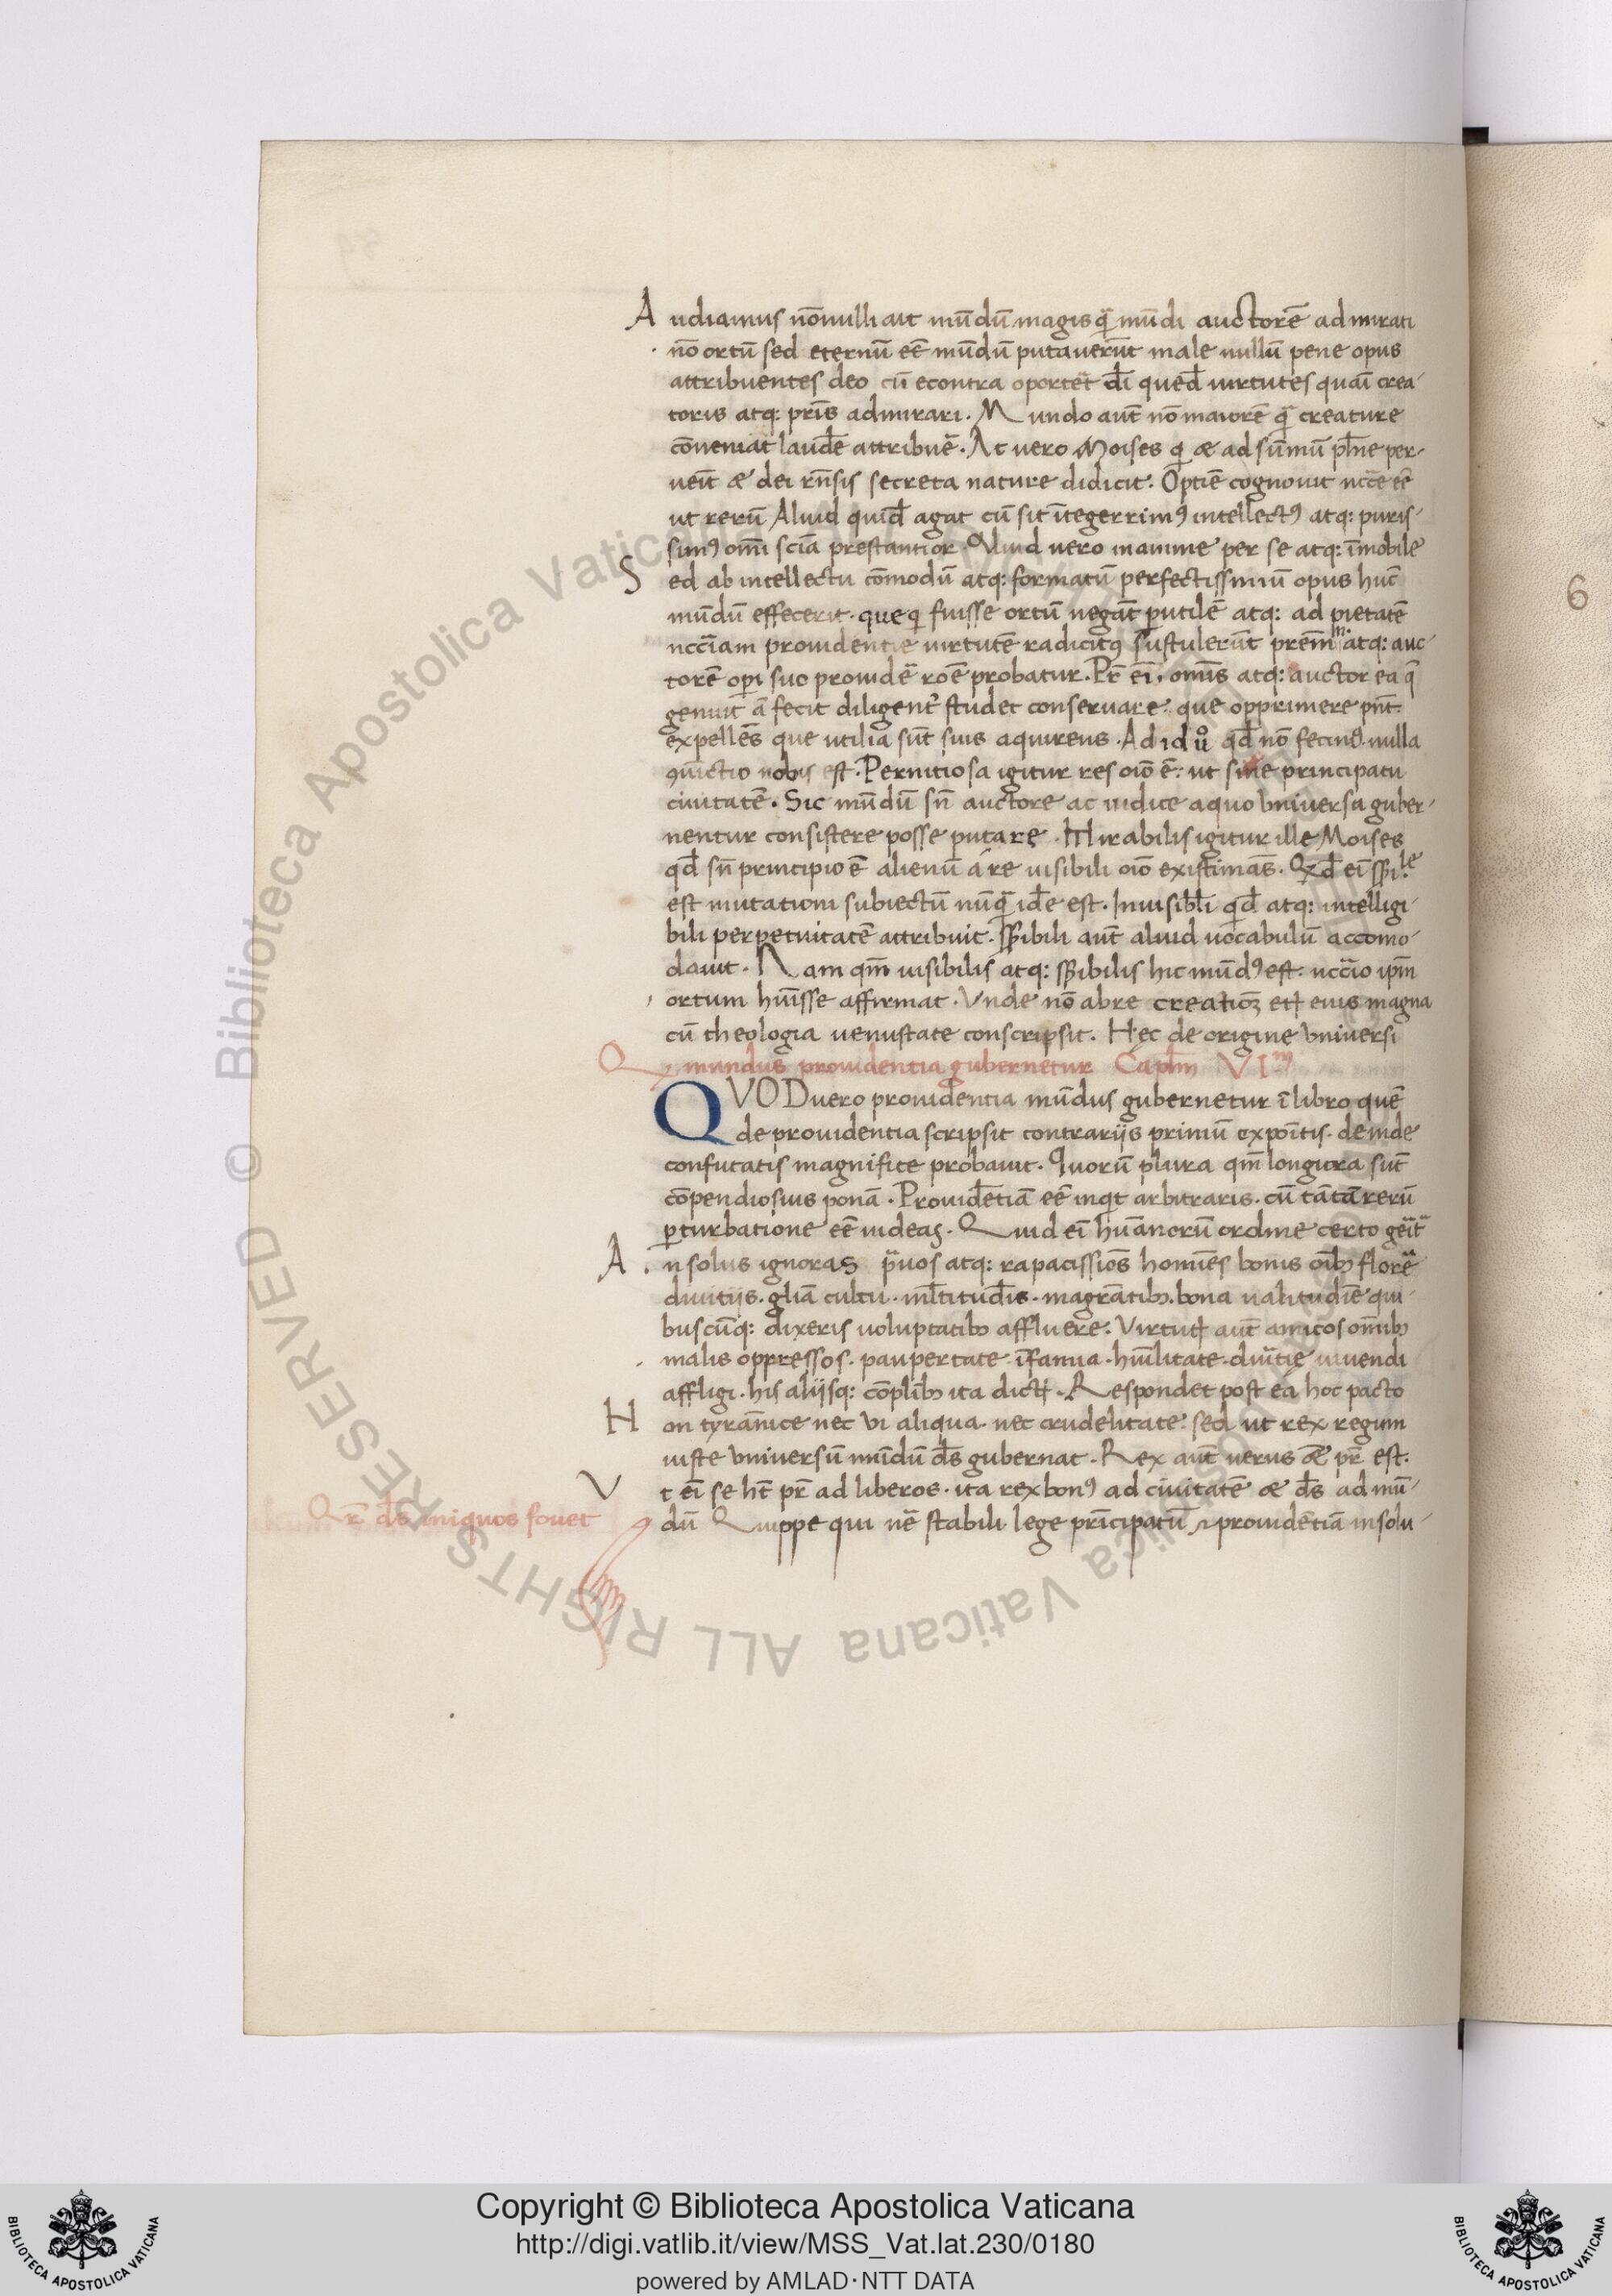 Audiamus nōnulli aut mūdū magis q̄ mūdi auctorē admirati
nō ortū sed eternū eē mūdū putauerūt male nullū pene opus
attribuentes deo cū econtra oportet dī quēd uirtutes quāī crea-
toris atq: prīs admirari. Mundo aut̄ nō maiorē q̄ creature
cōueniat laudē attribuē. At uero Moises q æ ad sūmū ph̄ne per-
ueīt æ dei rn̄sis secreta nature didicit. Optīe cognouit nc̄cē eē
ut rerū Aliud quid agat cū sit ītegerrimꝯ intellectꝯ atq: puris-
simꝯ om̄i sciā prestantior. Aliud uero inanime per se atq: īmobile
Sed ab intellectu cōmodū atq: formatū perfectissimū opus huc̄
mūdū effecerit. que q fuisse ortū negāt putilē atq: ad pietatē
nccīam prouidentie uirtutē radicitꝯ sustulerūt prēm atq: auc-
torē opi suo prouidē roē probatur. Pr̄ eī. omīs atq: auctor ea q̄
genuit ā fecit diligent̄ studet conseruare. que opprimere pn̄t.
expellēs que utilia sūt suis aquirens. Ad id ů qd̄ nō fecimꝯ. nulla
ꝯiūctio nobis est. Pernitiosa igitur res oīo ē. ut sine principatu
ciuitatē. Sic mūdū sn̄ auctore ac iudice aquo Vniuersa guber-
nentur consistere posse putare. Mirabilis igitur ille Moises
qd̄ sn̄ principio ē alienū á re uisibili oīo existimās. Qd̄ eī ssi.le
est mutationi subiectū nūq̄ idē est. Inuisibl̄i qd̄ atq: intelligi-
bili perpetuitatē attribuit. ss̄ibili aut̄ aliud uocabulū accomo-
dauit. Nam qm̄ uisibilis atq: ss̄ibilis hic mūdꝯ est. nccīo ipm̄
ortum huīsse affirmat. Vnde nō abre creatioꝫ etꝭ eius magna
cū theologia uenustate conscripsit. Hec de origine Vniuersi
Q mundus prouidentia gubernetur Capl̄m VIm
QVOD uero prouidentia mūdus gubernetur ī libro quē
de prouidentia scripsit contrarijs primū expoītis. deinde
confutatis magnifice probauit. Quorū plura qm̄ longiora sūt
cōpendiosius ponā. Prouidētiā eē inqt arbitraris. cū tātā rerū
pturbatione eē uideas. Quid eī huānorū ordine certo geīt
An solus ignoras prauos atq: rapacissīos homīes bonis oībꝫ florē
diuitijs. gl̄iā cultu. ml̄titudīs. magrātibꝫ. bona ualitudīe qui-
buscūq: dixeris uoluptatibꝫ affluere. Virtutꝭ aut̄ amicos om̄ibꝫ
malis oppressos. paupertate. īfamia. huīlitate. duītie uiuendi
affligi. his alijsq: cōplibꝫ ita dictꝭ. Respondet post ea hoc pacto
Hon tyrānice nec Vi aliqua. nec crudelitate. sed ut rex regum
iuste Vniuersū mūdū ds̄ gubernat. Rex aut̄ uerus æ pr̄ est.
Vt eī se ht̄ pr̄ ad liberos. ita rex bonꝯ ad ciuitatē æ ds̄ ad mū-
Qr̄ ds̄ iniquos fouet
dū Quippe qui nē stabili lege prīcipatū ꝛ prouidētiā insolu-
6
© Biblioteca Apostolica Vaticana ALL RIGHTS RESERVED
Copyright © Biblioteca Apostolica Vaticana
http://digi.vatlib.it/view/MSS_Vat.lat.230/0180
powered by AMLAD·NTT DATA
BIBLIOTECA APOSTOLICA VATICANA
BIBLIOTECA APOSTOLICA VATICANA